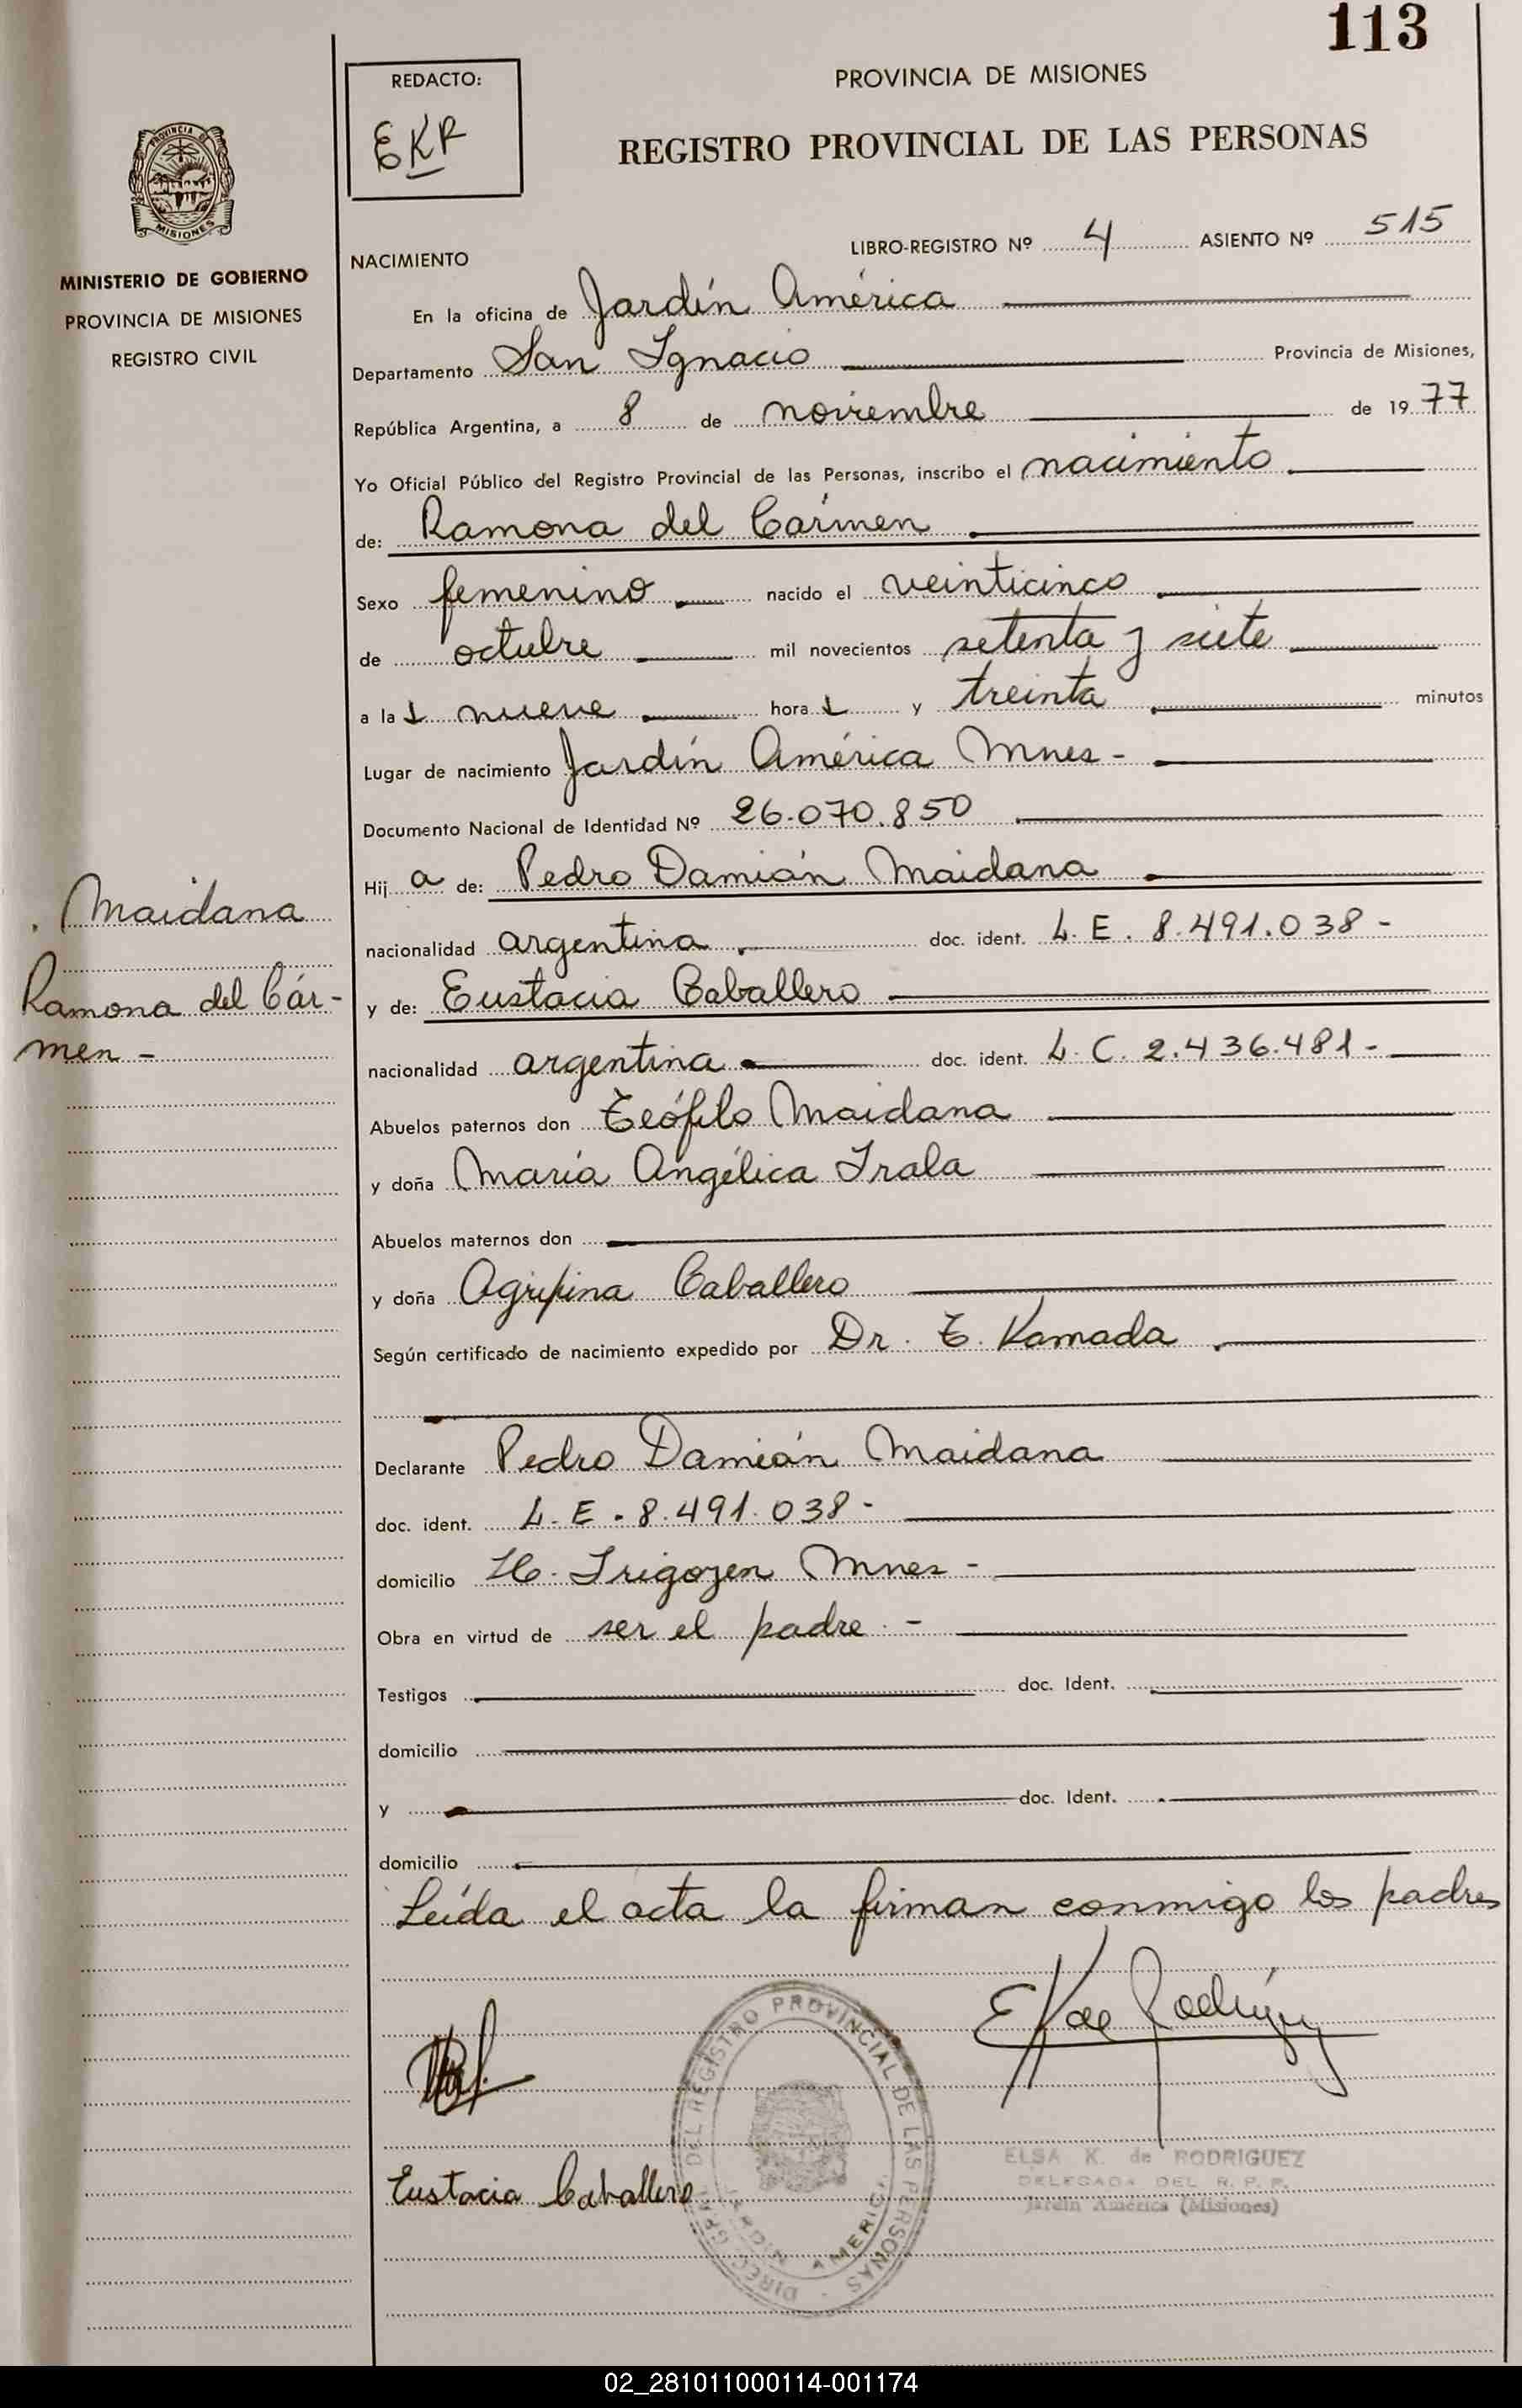 113
REDACTO:
EKR
PROVINCIA DE MISIONES
REGISTRO PROVINCIAL DE LAS PERSONAS
PROVINCIA DE
MISIONES
MINISTERIO DE GOBIERNO
PROVINCIA DE MISIONES
REGISTRO CIVIL
NACIMIENTO LIBRO-REGISTRO Nº 4 ASIENTO Nº 515
En la oficina de Jardín América
Departamento San Ignacio Provincia de Misiones,
República Argentina, a 8 de noviembre de 1977
Yo Oficial Público del Registro Provincial de las Personas, inscribo el nacimiento
de: Ramona del Cármen
Sexo femenino nacido el veinticinco
de octubre mil novecientos setenta y siete
a las nueve horas y treinta minutos
Lugar de nacimiento Jardín América Mnes -
Documento Nacional de Identidad Nº 26.070.850
Hija de: Pedro Damián Maidana
Maidana
Ramona del Cár-
men -
nacionalidad argentina doc. ident. L. E. 8.491.038 -
y de: Eustacia Caballero
nacionalidad argentina doc. ident. L. C. 2.436.481 -
Abuelos paternos don Teófilo Maidana
y doña María Angélica Irala
Abuelos maternos don
y doña Agripina Caballero
Según certificado de nacimiento expedido por Dr. T. Kamada
Declarante Pedro Damián Maidana
doc. ident. L. E. 8.491.038 -
domicilio H. Irigoyen Mnes -
Obra en virtud de ser el padre. -
Testigos doc. Ident.
domicilio
y doc. Ident.
domicilio
Leída el acta la firman conmigo los padres
E K de Rodríguez
DIREC. GRAL. DEL REGISTRO PROVINCIAL DE LAS PERSONAS
JARDIN AMERICA
ELSA K. de RODRIGUEZ
DELEGADA DEL R. P. P.
Jardín América (Misiones)
Eustacia Caballero
02_281011000114-001174